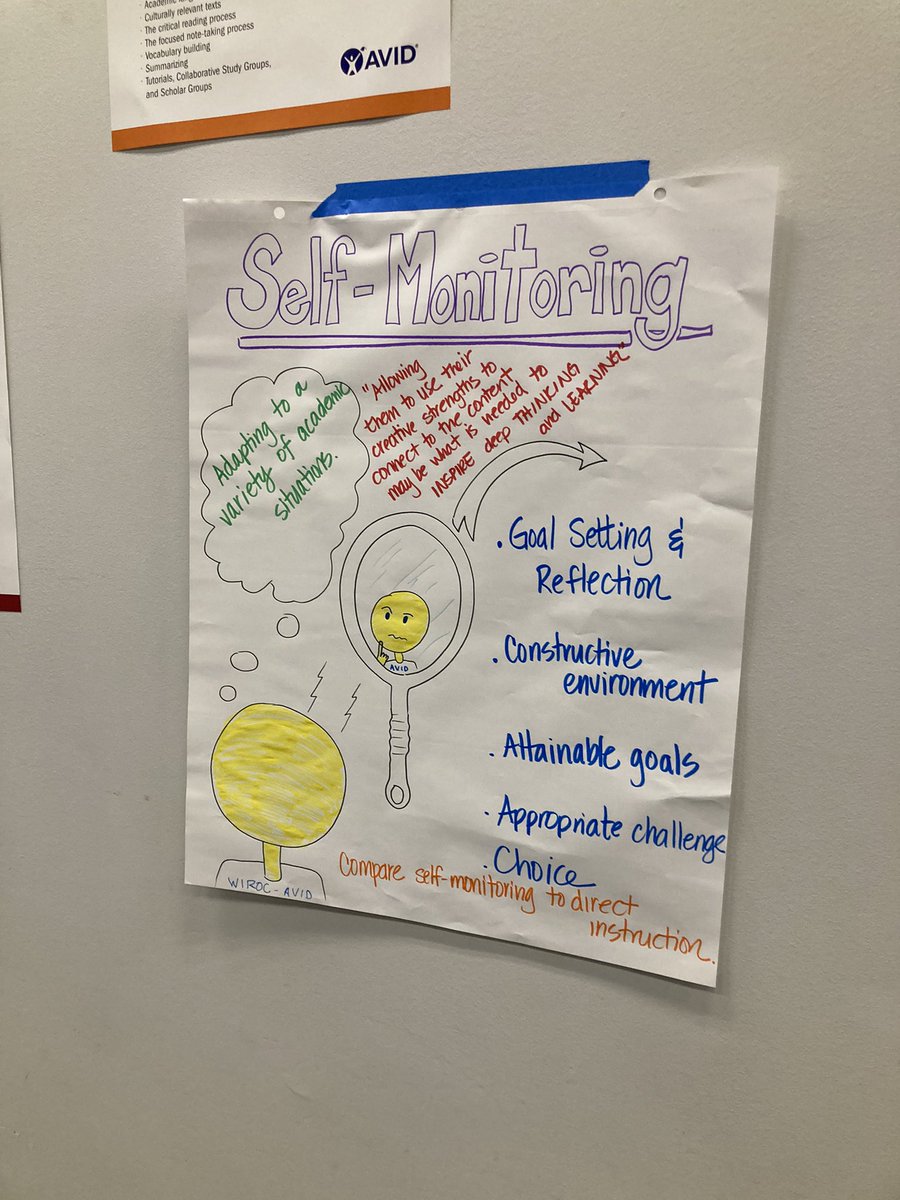 · Culturally relevant texts
· The critical reading process
· The focused note-taking process
· Vocabulary building
· Summarizing
· Tutorials, Collaborative Study Groups,
and Scholar Groups
AVID
Self-Monitoring
Adapting to a
variety of academic
situations.
"Allowing
them to use their
creative strengths to
connect to the content
may be what is needed to
INSPIRE deep THINKING
and LEARNING"
. Goal Setting &
Reflection
. Constructive
environment
. Attainable goals
. Appropriate challenge
. Choice
AVID
WIROC-AVID
Compare self-monitoring to direct
instruction.